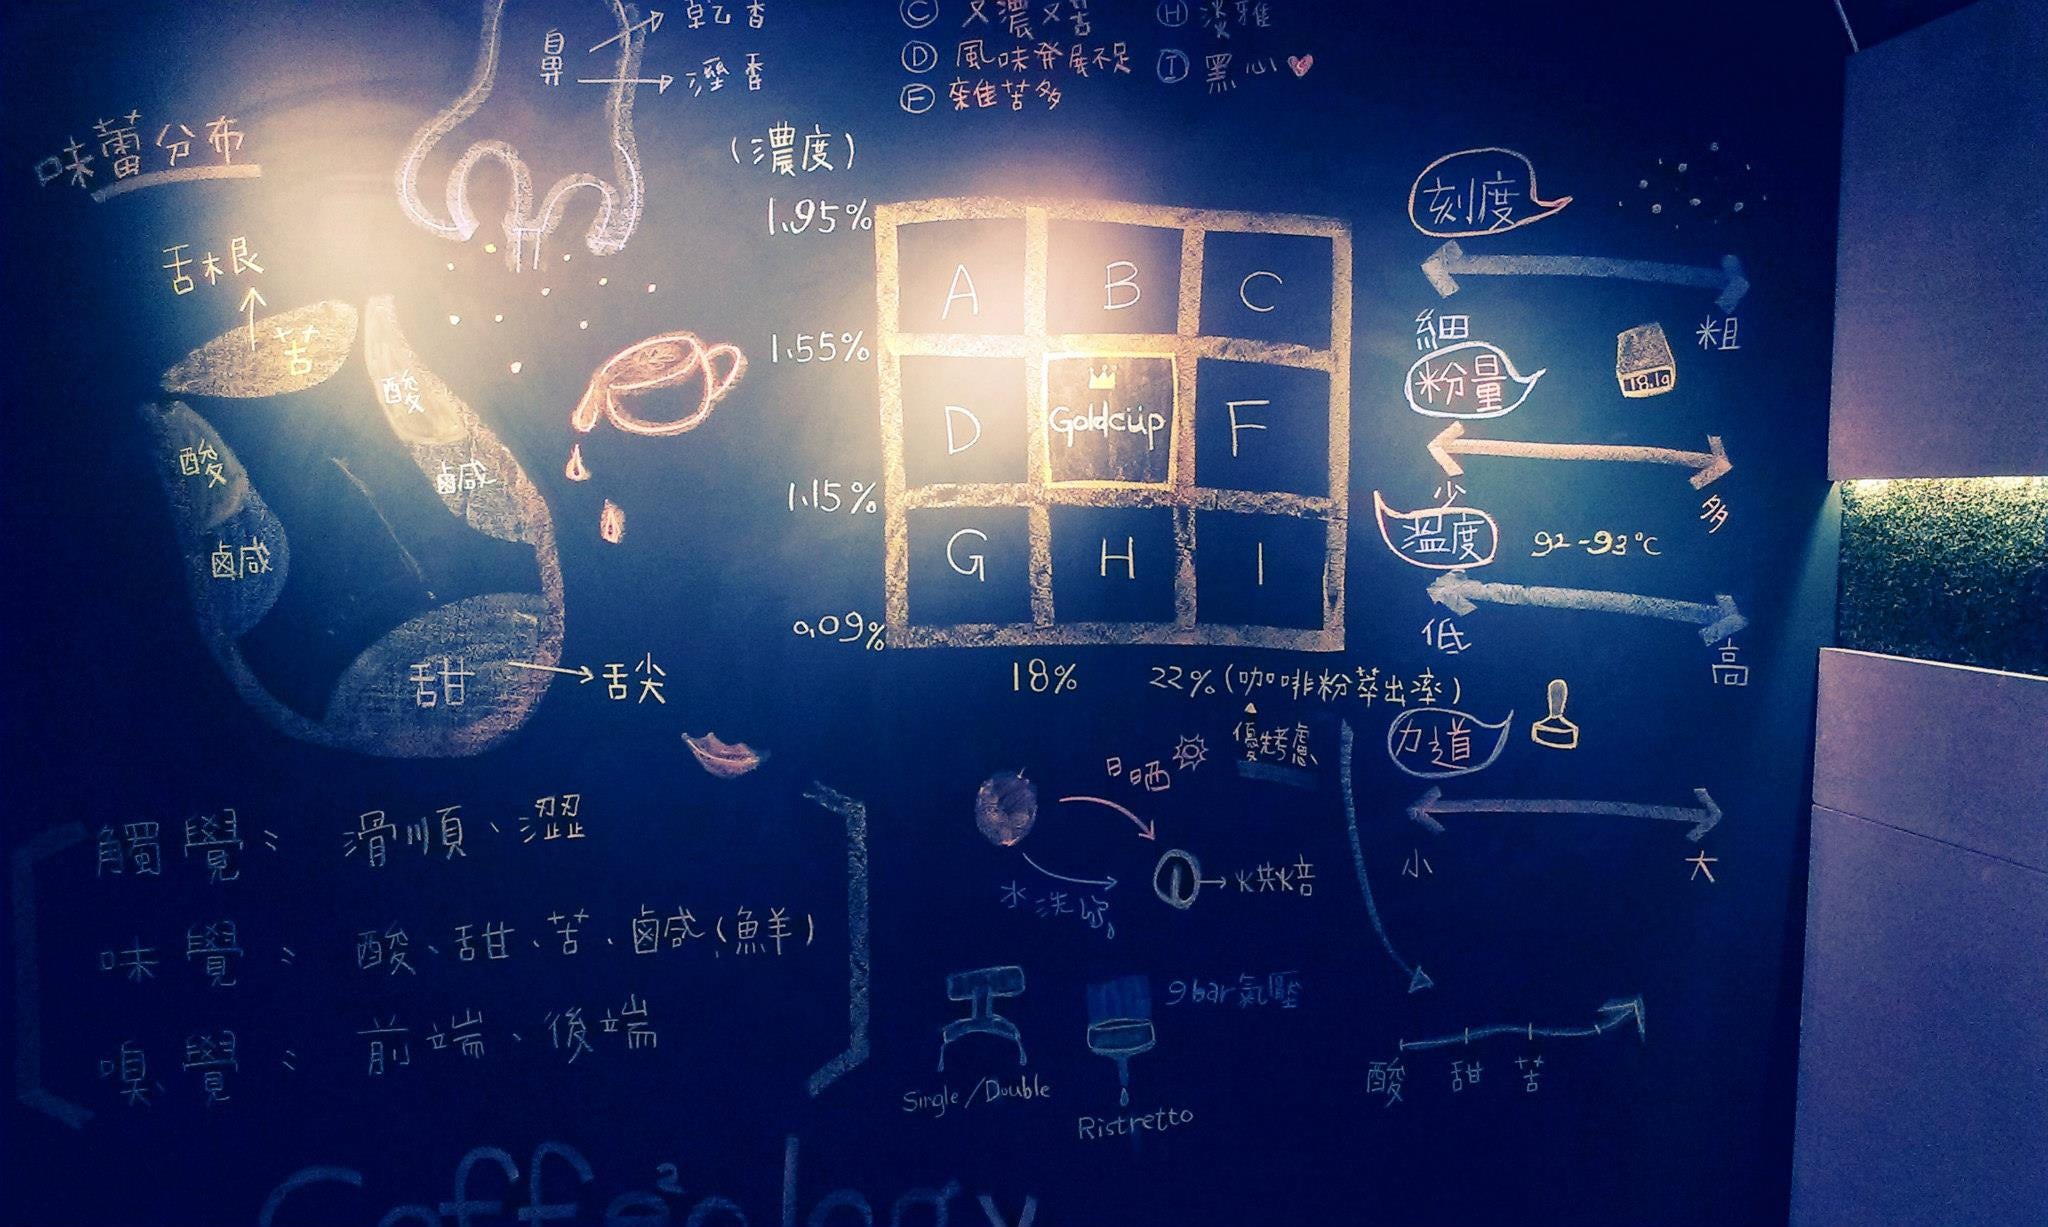 鼻
乾香
溼香
Ⓒ 又濃又苦
Ⓓ 風味発展不足
Ⓕ 雜苦多
Ⓗ 淡雅
Ⓘ 黑心
味蕾分布
舌根
苦
酸
鹵咸
酸
鹵咸
甜
舌尖
(濃度)
1.95%
1.55%
1.15%
0.09%
A B C
D Goldcup F
G H I
18% 22% (咖啡粉萃出率)
優先考慮
刻度
細 粗
粉量
18.1g
少 多
溫度 92-93°C
低 高
力道
小 大
日晒
水洗
烘焙
觸覺: 滑順、澀
味覺: 酸、甜、苦、鹵咸(鮮)
嗅覺: 前端、後端
9bar氣壓
Single/Double
Ristretto
酸 甜 苦
Coffee²ology